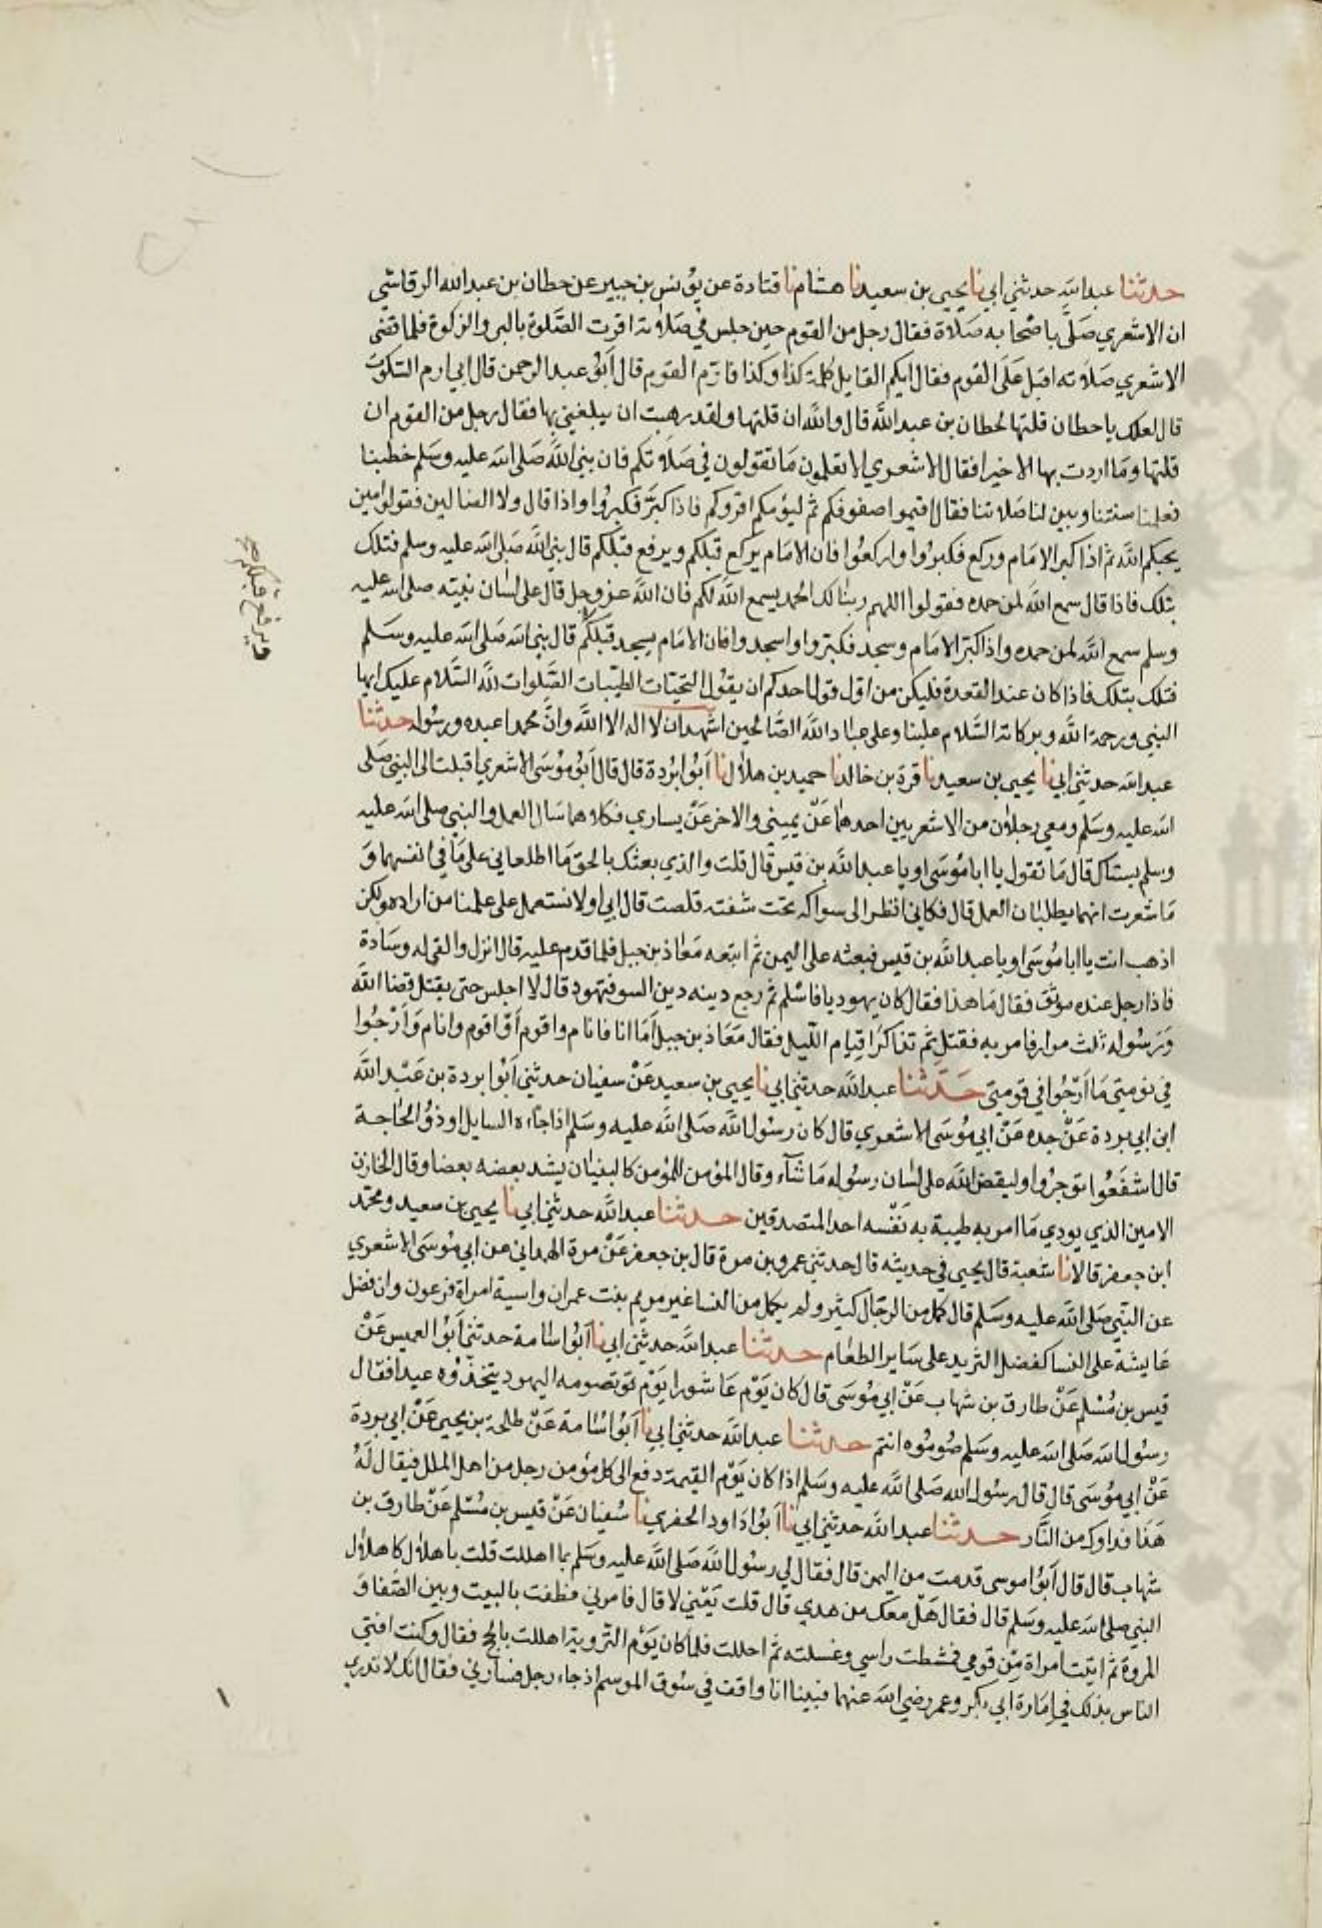 حدثنا عبد الله حدثني ابي نا يحيى بن سعيد نا هشام نا قتادة عن يونس بن جبير عن حطان بن عبد الله الرقاشي
ان الاشعري صلى باصحابه صلاة فقال رجل من القوم حين جلس في صلاته اقرت الصلوة بالبر والزكوة فلما قضى
الاشعري صلاته اقبل على القوم فقال ايكم القايل كلمة كذا وكذا فارم القوم قال ابو عبد الرحمن قال ابي ارم السكوت
قال لعلك ياحطان قلتها لحطان بن عبد الله قال والله ان قلتها ولقد رهبت ان يبلغني بها فقال رجل من القوم ان
قلتها وما اردت بها الا خيرا فقال الاشعري الا تعلمون ما تقولون في صلاتكم فان نبي الله صلى الله عليه وسلم خطبنا
فعلمنا سنتنا وبين لنا صلاتنا فقال اقيموا صفوفكم ثم ليؤمكم اقروكم فاذا كبر فكبروا واذا قال ولا الضالين فقولوا امين
يحبكم الله ثم اذا كبر الامام وركع فكبروا واركعوا فان الامام يركع قبلكم ويرفع قبلكم قال نبي الله صلى الله عليه وسلم فتلك
بتلك فاذا قال سمع الله لمن حمده فقولوا اللهم ربنا لك الحمد يسمع الله لكم فان الله عز وجل قال على لسان نبيه صلى الله عليه
وسلم سمع الله لمن حمده واذا كبر الامام وسجد فكبروا واسجدوا فان الامام يسجد قبلكم قال نبي الله صلى الله عليه وسلم
فتلك بتلك فاذا كان عند القعدة فليكن من اول قول احدكم ان يقول التحيات الطيبات الصلوات لله السلام عليك ايها
النبي ورحمة الله وبركاته السلام علينا وعلى عباد الله الصالحين اشهد ان لا اله الا الله وان محمدا عبده ورسوله حدثنا
عبد الله حدثني ابي نا يحيى بن سعيد نا قرة بن خالد نا حميد بن هلال نا ابو بردة قال قال ابو موسى الاشعري اقبلت الى النبي صلى
الله عليه وسلم ومعي رجلان من الاشعريين احدهما عن يميني والاخر عن يساري فكلاهما سال العمل والنبي صلى الله عليه
وسلم يستاك قال ما تقول يا ابا موسى او يا عبد الله بن قيس قال قلت والذي بعثك بالحق ما اطلعاني على ما في انفسهما و
ما شعرت انهما يطلبان العمل قال فكاني انظر الى سواكه تحت شفته قلصت قال اني او لا نستعمل على عملنا من اراده ولكن
اذهب انت يا ابا موسى او يا عبد الله بن قيس فبعثه على اليمن ثم اتبعه معاذ بن جبل فلما قدم عليه قال انزل والقى له وسادة
فاذا رجل عنده موثق فقال ما هذا فقال كان يهوديا فاسلم ثم رجع دينه دين السو فتهود قال لا اجلس حتى يقتل قضا الله
ورسوله ثلث مرار فامر به فقتل ثم تذاكرا قيام الليل فقال معاذ بن جبل اما انا فانام واقوم او اقوم وانام وارجوا
في نومتي ما ارجوا في قومتي حدثنا عبد الله حدثني ابي نا يحيى بن سعيد عن سفيان حدثني ابو بردة بن عبد الله
ابن ابي بردة عن جده عن ابي موسى الاشعري قال كان رسول الله صلى الله عليه وسلم اذا جاءه السايل او ذو الحاجة
قال اشفعوا توجروا وليقض الله على لسان رسوله ما شاء وقال المؤمن للمؤمن كالبنيان يشد بعضه بعضا وقال الخازن
الامين الذي يودي ما امر به طيبة به نفسه احد المتصدقين حدثنا عبد الله حدثني ابي نا يحيى بن سعيد ومحمد
ابن جعفر قالا نا شعبة قال يحيى في حديثه قال حدثني عمرو بن مرة قال بن جعفر عن مرة الهمداني عن ابي موسى الاشعري
عن النبي صلى الله عليه وسلم قال كمل من الرجال كثير ولم يكمل من النسا غير مريم بنت عمران واسية امراة فرعون وان فضل
عايشة على النسا كفضل الثريد على ساير الطعام حدثنا عبد الله حدثني ابي نا ابو اسامة حدثني ابو العميس عن
قيس بن مسلم عن طارق بن شهاب عن ابي موسى قال كان يوم عاشورا يوم تصومه اليهود تتخذوه عيدا فقال
رسول الله صلى الله عليه وسلم صوموه انتم حدثنا عبد الله حدثني ابي نا ابو اسامة عن طلحة بن يحيى عن ابي بردة
عن ابي موسى قال قال رسول الله صلى الله عليه وسلم اذا كان يوم القيمة دفع الى كل مؤمن رجل من اهل الملل فيقال له
هذا فداوك من النار حدثنا عبد الله حدثني ابي نا ابو داود الحفري نا سفيان عن قيس بن مسلم عن طارق بن
شهاب قال قال ابو موسى قدمت من اليمن قال فقال لي رسول الله صلى الله عليه وسلم بما اهللت قلت باهلال كاهلال
النبي صلى الله عليه وسلم قال فقال هل معك من هدي قال قلت يعني لا قال فامرني فطفت بالبيت وبين الصفا و
المروة ثم اتيت امراة من قومي فمشطت راسي وغسلته ثم احللت فلما كان يوم التروية اهللت بالحج فقال وكنت افتي
الناس بذلك في امارة ابي بكر وعمر رضي الله عنهما فبينا انا واقف في سوق الموسم اذ جاء رجل فسارني فقال انك لا تدري
ويرفع قبلكم صح
١